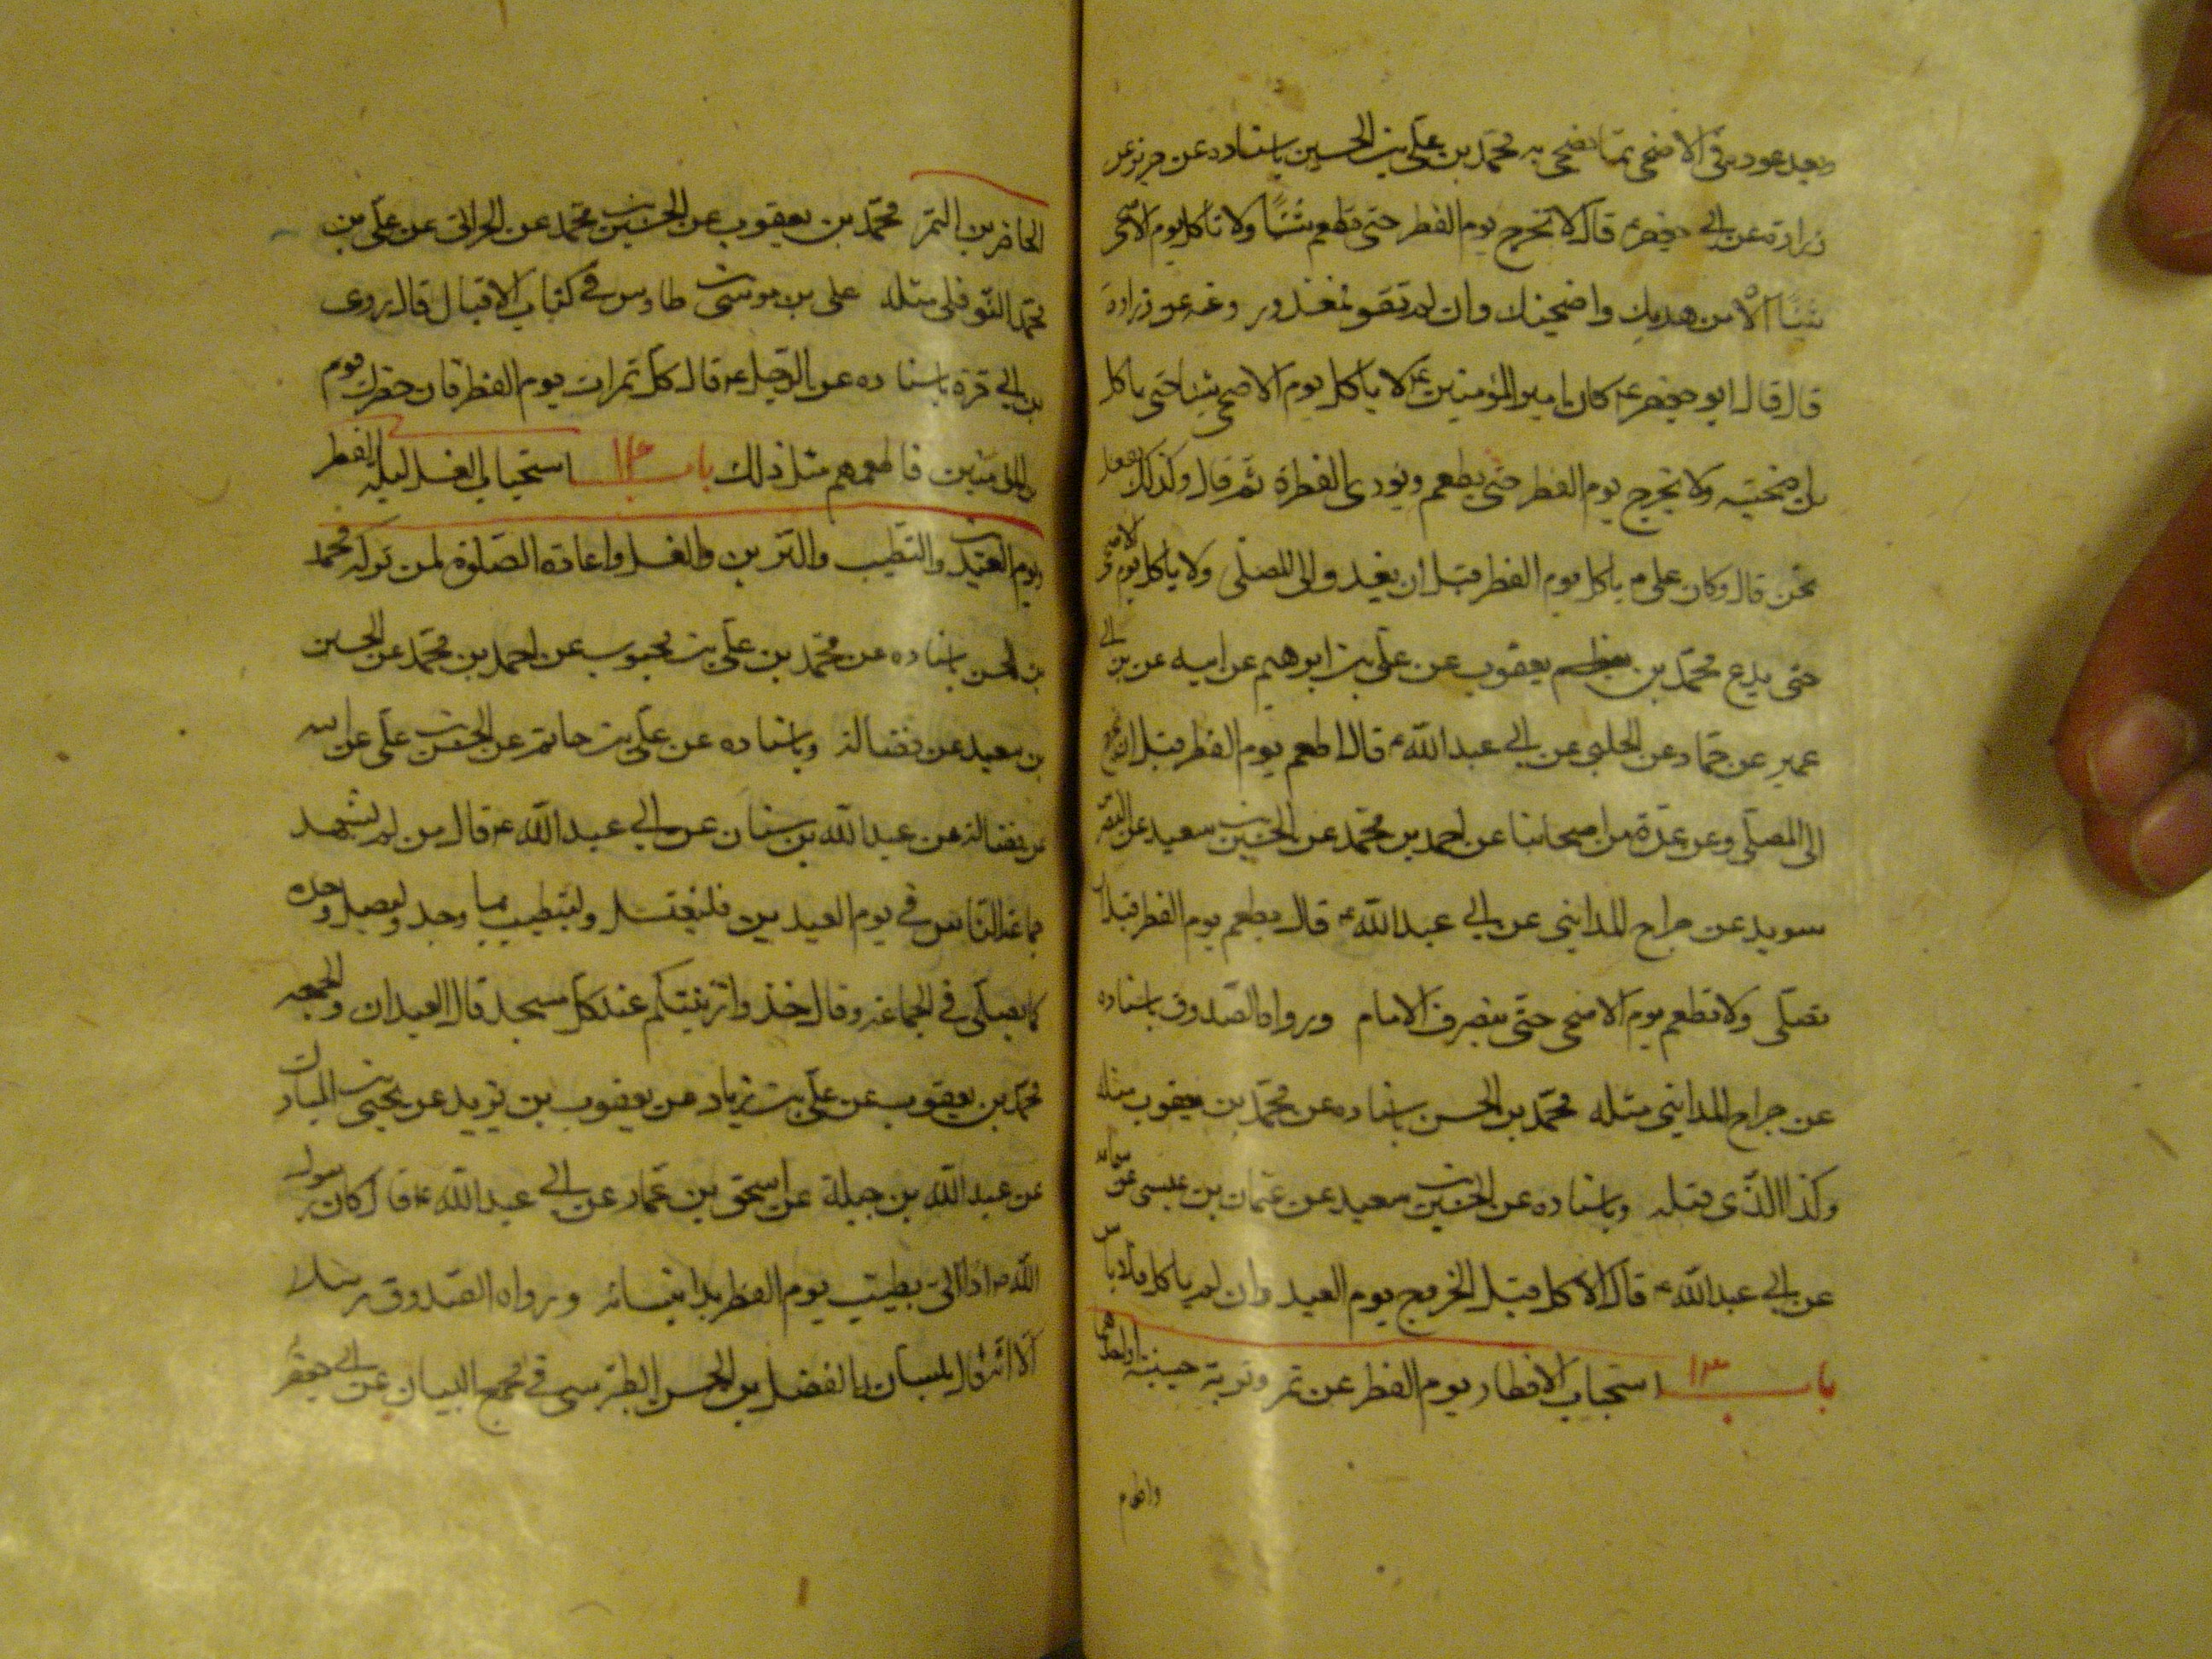 بعد عوده في الاضحى بما يضحى به محمد بن علي بن الحسين باسناده عن حريز عن
زرارة عن ابي جعفر ع قال لا تخرج يوم الفطر حتى تطعم شيئا ولا تاكل يوم الاضحى
شيئا الا من هديك واضحيتك وان لم تقو فمعذور وعنه عن زرارة
قال قال ابو جعفر ع كان امير المؤمنين ع لا ياكل يوم الاضحى شيئا حتى ياكل
من اضحيته ولا يخرج يوم الفطر حتى يطعم ويؤدى الفطرة ثم قال وكذلك نفعل
نحن قال وكان علي م ياكل يوم الفطر قبل ان يغدو الى المصلى ولا ياكل يوم الاضحى
حتى يذبح محمد بن يعقوب عن علي بن ابرهيم عن ابيه عن بن ابي
عمير عن حماد عن الحلبي عن ابي عبد الله ع قال اطعم يوم الفطر قبل ان تخرج
الى المصلى وعن عدة من اصحابنا عن احمد بن محمد عن الحسين بن سعيد عن النضر
سويد عن جراح المدايني عن ابي عبد الله ع قال يطعم يوم الفطر قبل ان
تصلى ولا تطعم يوم الاضحى حتى ينصرف الامام ورواه الصدوق باسناده
عن جراح المدايني مثله محمد بن الحسن باسناده عن محمد بن يعقوب مثله
وكذا الذي قبله وباسناده عن الحسين بن سعيد عن عثمان بن عيسى عن سماعه
عن ابي عبد الله ع قال الاكل قبل الخروج يوم العيد وان لم ياكل فلا باس
باب ١٣ استحباب الافطار يوم الفطر على تمر وتربة حسينية او احدهما
واطعام
الحاضرين التمر محمد بن يعقوب عن الحسين بن محمد عن الحراني عن علي بن
محمد النوفلي مثله علي بن موسى بن طاوس في كتاب الاقبال قال روى
بن ابي قرة باسناده عن الرجل ع قال كل تمرات يوم الفطر فان حضرك قوم
من المؤمنين فاطعمهم مثل ذلك باب ١٤ استحباب الغسل ليلة الفطر
ويوم العيدين والتطيب والتزين والغسل واعادة الصلوة لمن تركه محمد
بن الحسن باسناده عن محمد بن علي بن محبوب عن احمد بن محمد عن الحسين
بن سعيد عن فضالة وباسناده عن علي بن حاتم عن الحسن بن علي عن ابيه
عن فضالة عن عبد الله بن سنان عن ابي عبد الله ع قال من لم يشهد
جماعة الناس في يوم العيدين فليغتسل وليتطيب بما وجد وليصل وحده
كما يصلى في الجماعة وقال خذوا زينتكم عند كل مسجد قال العيدان والجمعه
محمد بن يعقوب عن علي بن زياد عن يعقوب بن يزيد عن يحيى بن المبارك
عن عبد الله بن جبلة عن اسحق بن عمار عن ابي عبد الله ع قال كان رسول
الله ص اذا اتى بطيب يوم الفطر بدا بنسائه ورواه الصدوق مرسلا
الا انه قال بلسانه الفضل بن الحسن الطبرسي في مجمع البيان عن ابي جعفر